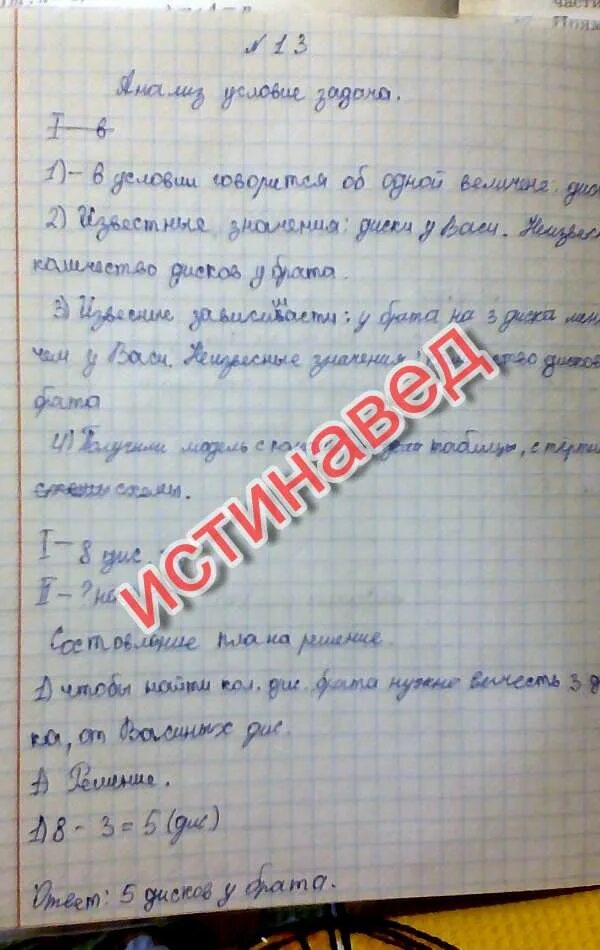 № 13
Анализ условие задача.
I — в
1) – в условии говорится об одной величене: диск
2) Известные значения: диски у Васи. Неизвесн
количество дисков у брата.
3) Извесные зависимасти: у брата на 3 диска мен
чем у Васи. Неизвесные значения дисков
брата
4) Получили модель с таблицы, с
схемы.
I – 8 дис.
II – ? на
Состовление плана решение.
1) чтобы найти кол. дис. брата нужно вычесть 3 д
ка, от Васиных дис.
Решение.
1) 8 - 3 = 5 (дис)
Ответ: 5 дисков у брата.
истинавед